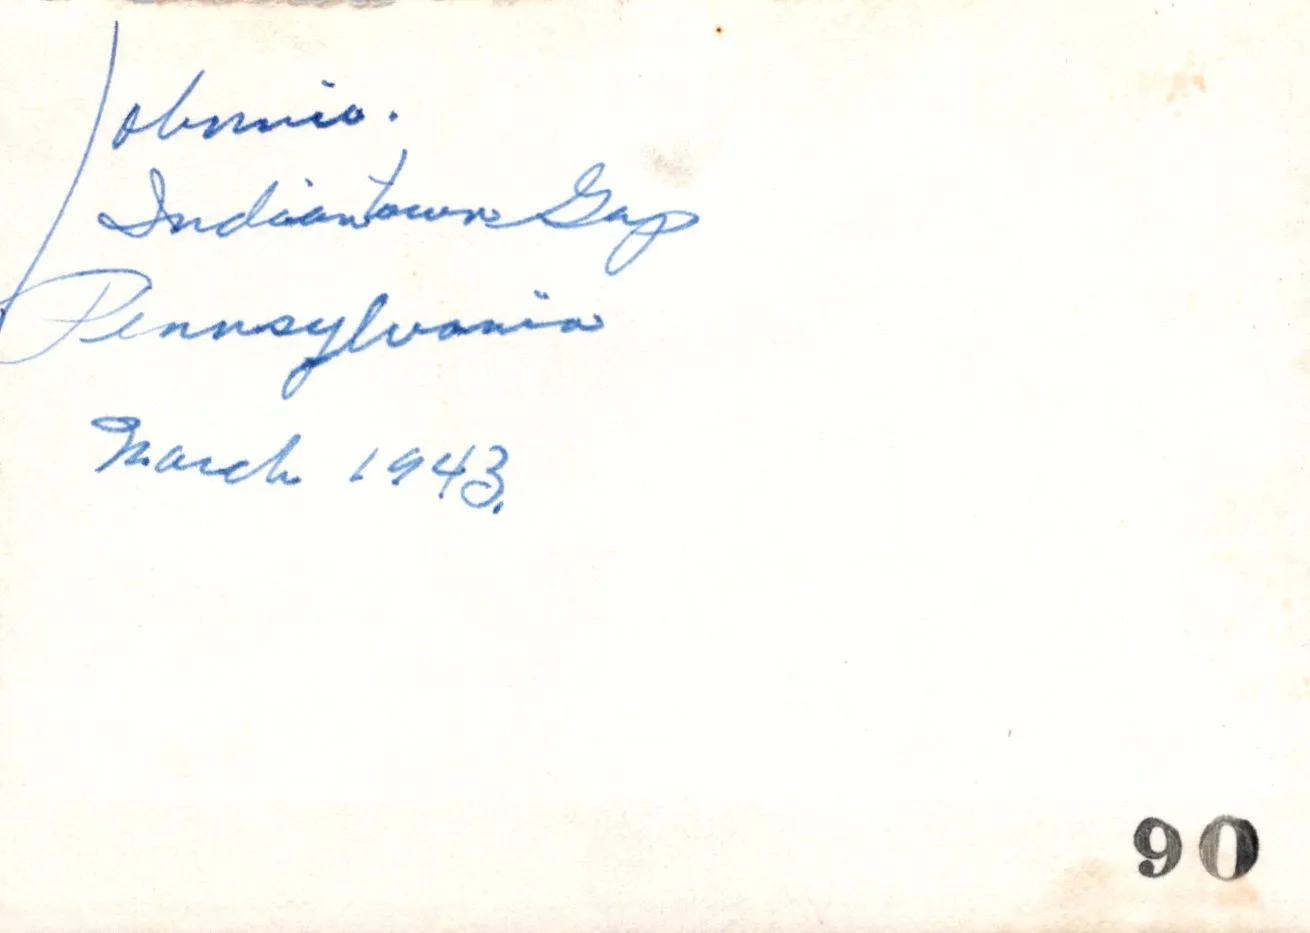 Johnnie.
Indiantown Gap
Pennsylvania
March 1943.
90